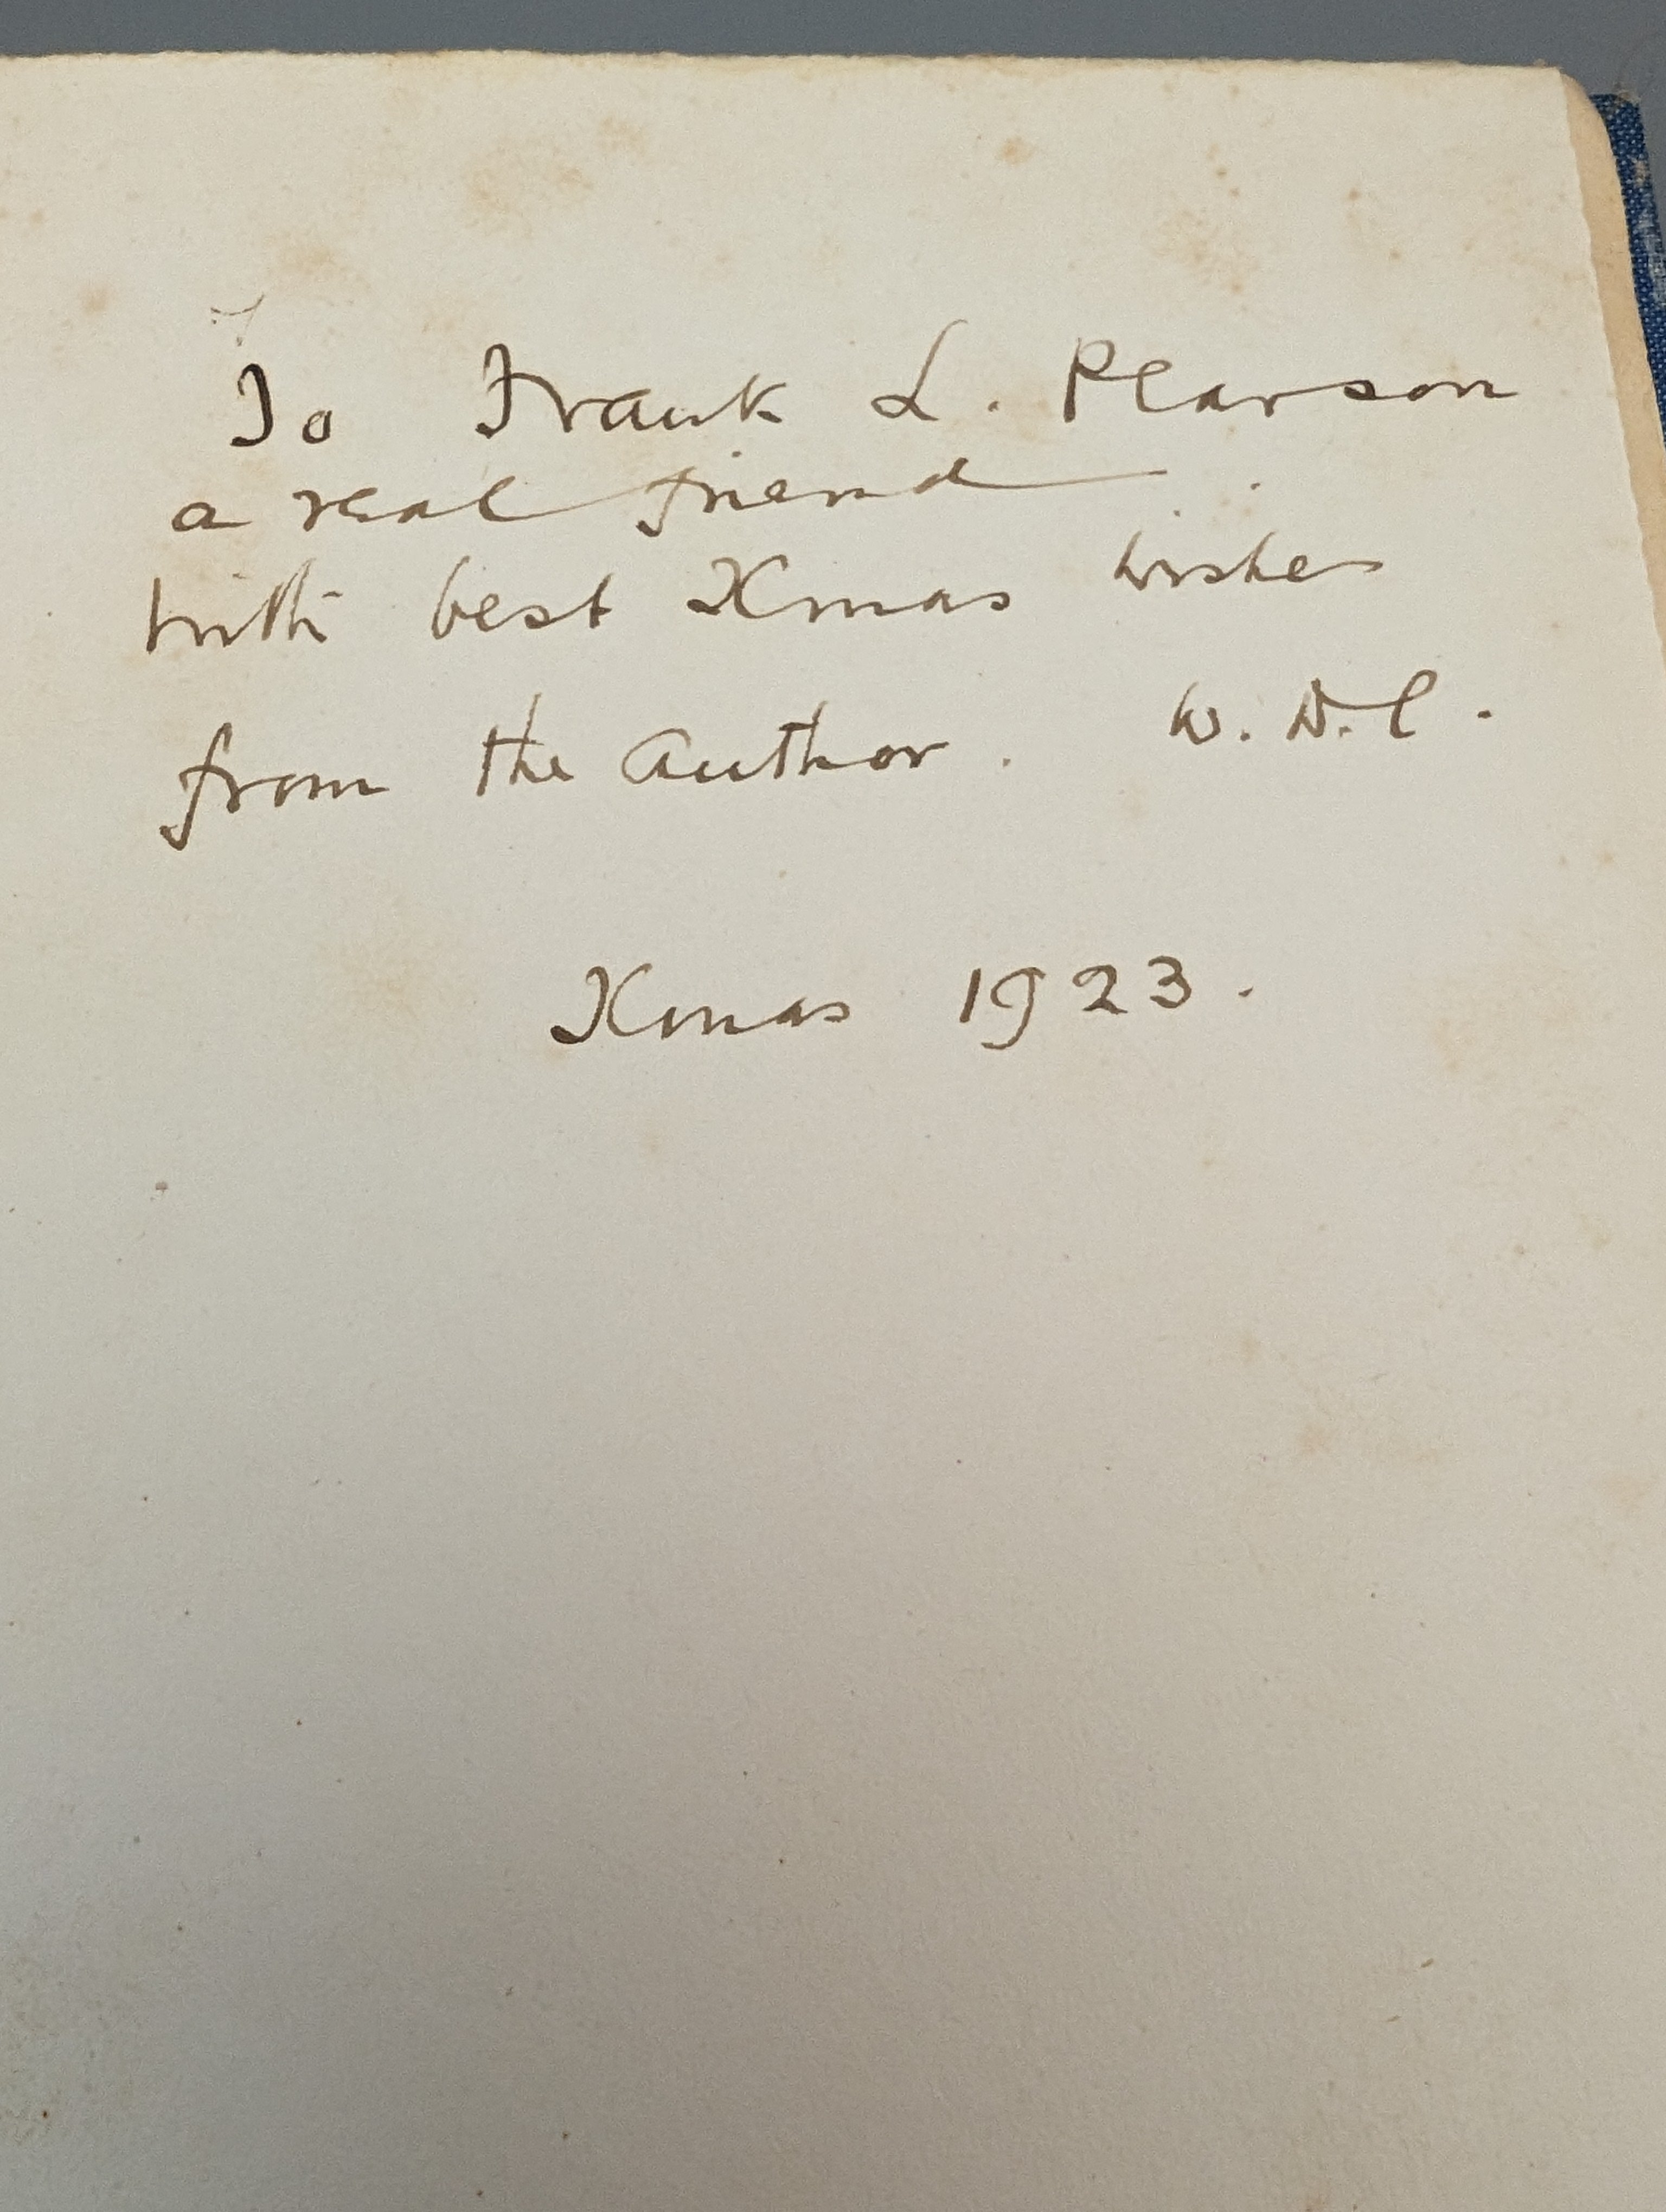 To Frank L. Pearson
a real friend
with best Xmas wishes
from the author. W. D. C.
Xmas 1923.